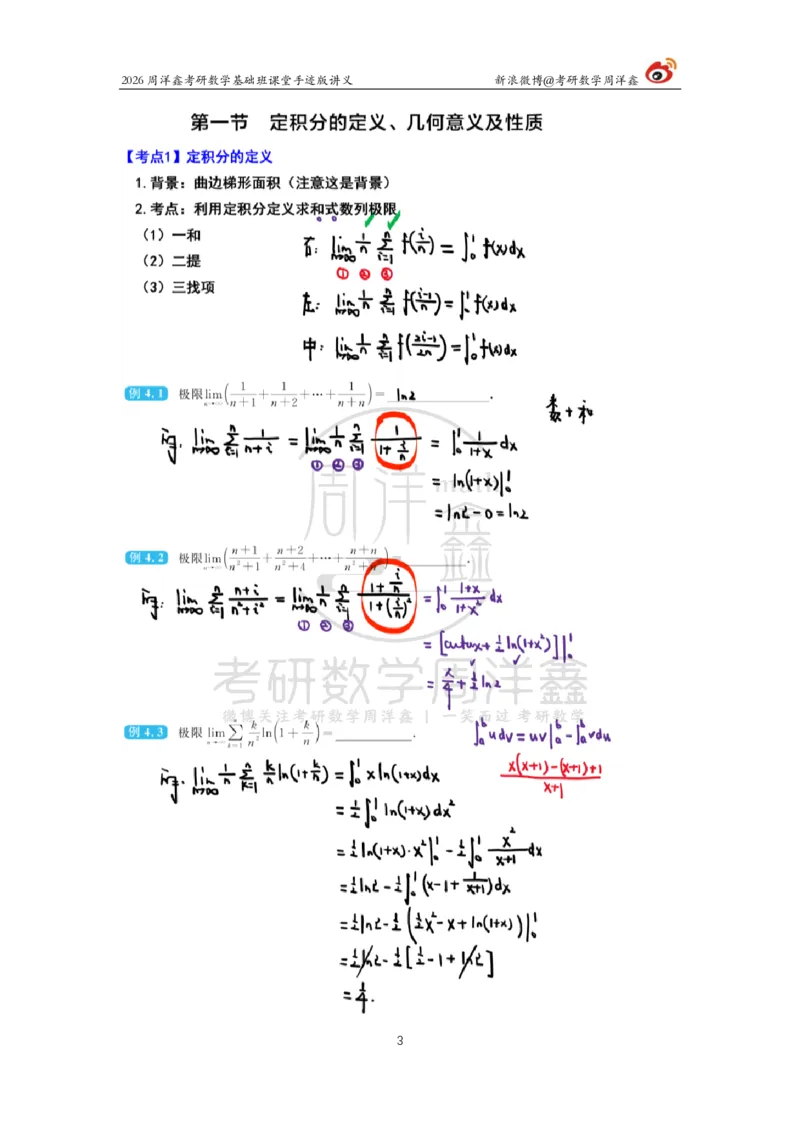 2026 周洋鑫考研数学基础班课堂手迹版讲义 新浪微博@考研数学周洋鑫
第一节 定积分的定义、几何意义及性质
【考点1】定积分的定义
1.背景：曲边梯形面积（注意这是背景）
2.考点：利用定积分定义求和式数列极限
（1）一和
（2）二提
（3）三找项
右: lim_{n→∞} 1/n ∑_{i=1}^{n} f(i/n) = ∫_0^1 f(x)dx
① ② ③
左: lim_{n→∞} 1/n ∑_{i=1}^{n} f((i-1)/n) = ∫_0^1 f(x)dx
中: lim_{n→∞} 1/n ∑_{i=1}^{n} f((2i-1)/2n) = ∫_0^1 f(x)dx
例 4.1 极限 lim_{n→∞} (1/(n+1) + 1/(n+2) + ⋯ + 1/(n+n)) = ln2 .
lim_{n→∞} ∑_{i=1}^{n} 1/(n+i) = lim_{n→∞} 1/n ∑_{i=1}^{n} 1/(1+i/n) = ∫_0^1 1/(1+x) dx
① ② ③
= ln(1+x)|_0^1
= ln2 - 0 = ln2
周洋鑫 math
例 4.2 极限 lim_{n→∞} ((n+1)/(n²+1) + (n+2)/(n²+4) + ⋯ + (n+n)/(n²+n²)) .
lim_{n→∞} ∑_{i=1}^{n} (n+i)/(n²+i²) = lim_{n→∞} 1/n ∑_{i=1}^{n} (1+i/n)/(1+(i/n)²) = ∫_0^1 (1+x)/(1+x²) dx
① ② ③
= [arctanx + 1/2 ln(1+x²)]|_0^1
= π/4 + 1/2 ln2
考研数学周洋鑫
微博关注考研数学周洋鑫 | 一笑而过 考研数学
例 4.3 极限 lim_{n→∞} ∑_{k=1}^{n} k/n² ln(1+k/n) = .
∫_a^b udv = uv|_a^b - ∫_a^b vdu
lim_{n→∞} 1/n ∑_{k=1}^{n} k/n ln(1+k/n) = ∫_0^1 x ln(1+x)dx
(x(x+1)-(x+1)+1)/(x+1)
= 1/2 ∫_0^1 ln(1+x)dx²
= 1/2 ln(1+x)·x²|_0^1 - 1/2 ∫_0^1 x²/(x+1) dx
= 1/2 ln2 - 1/2 ∫_0^1 (x-1+1/(x+1))dx
= 1/2 ln2 - 1/2 (1/2 x² - x + ln(1+x))|_0^1
= 1/2 ln2 - 1/2 [1/2 - 1 + ln2]
= 1/4.
3